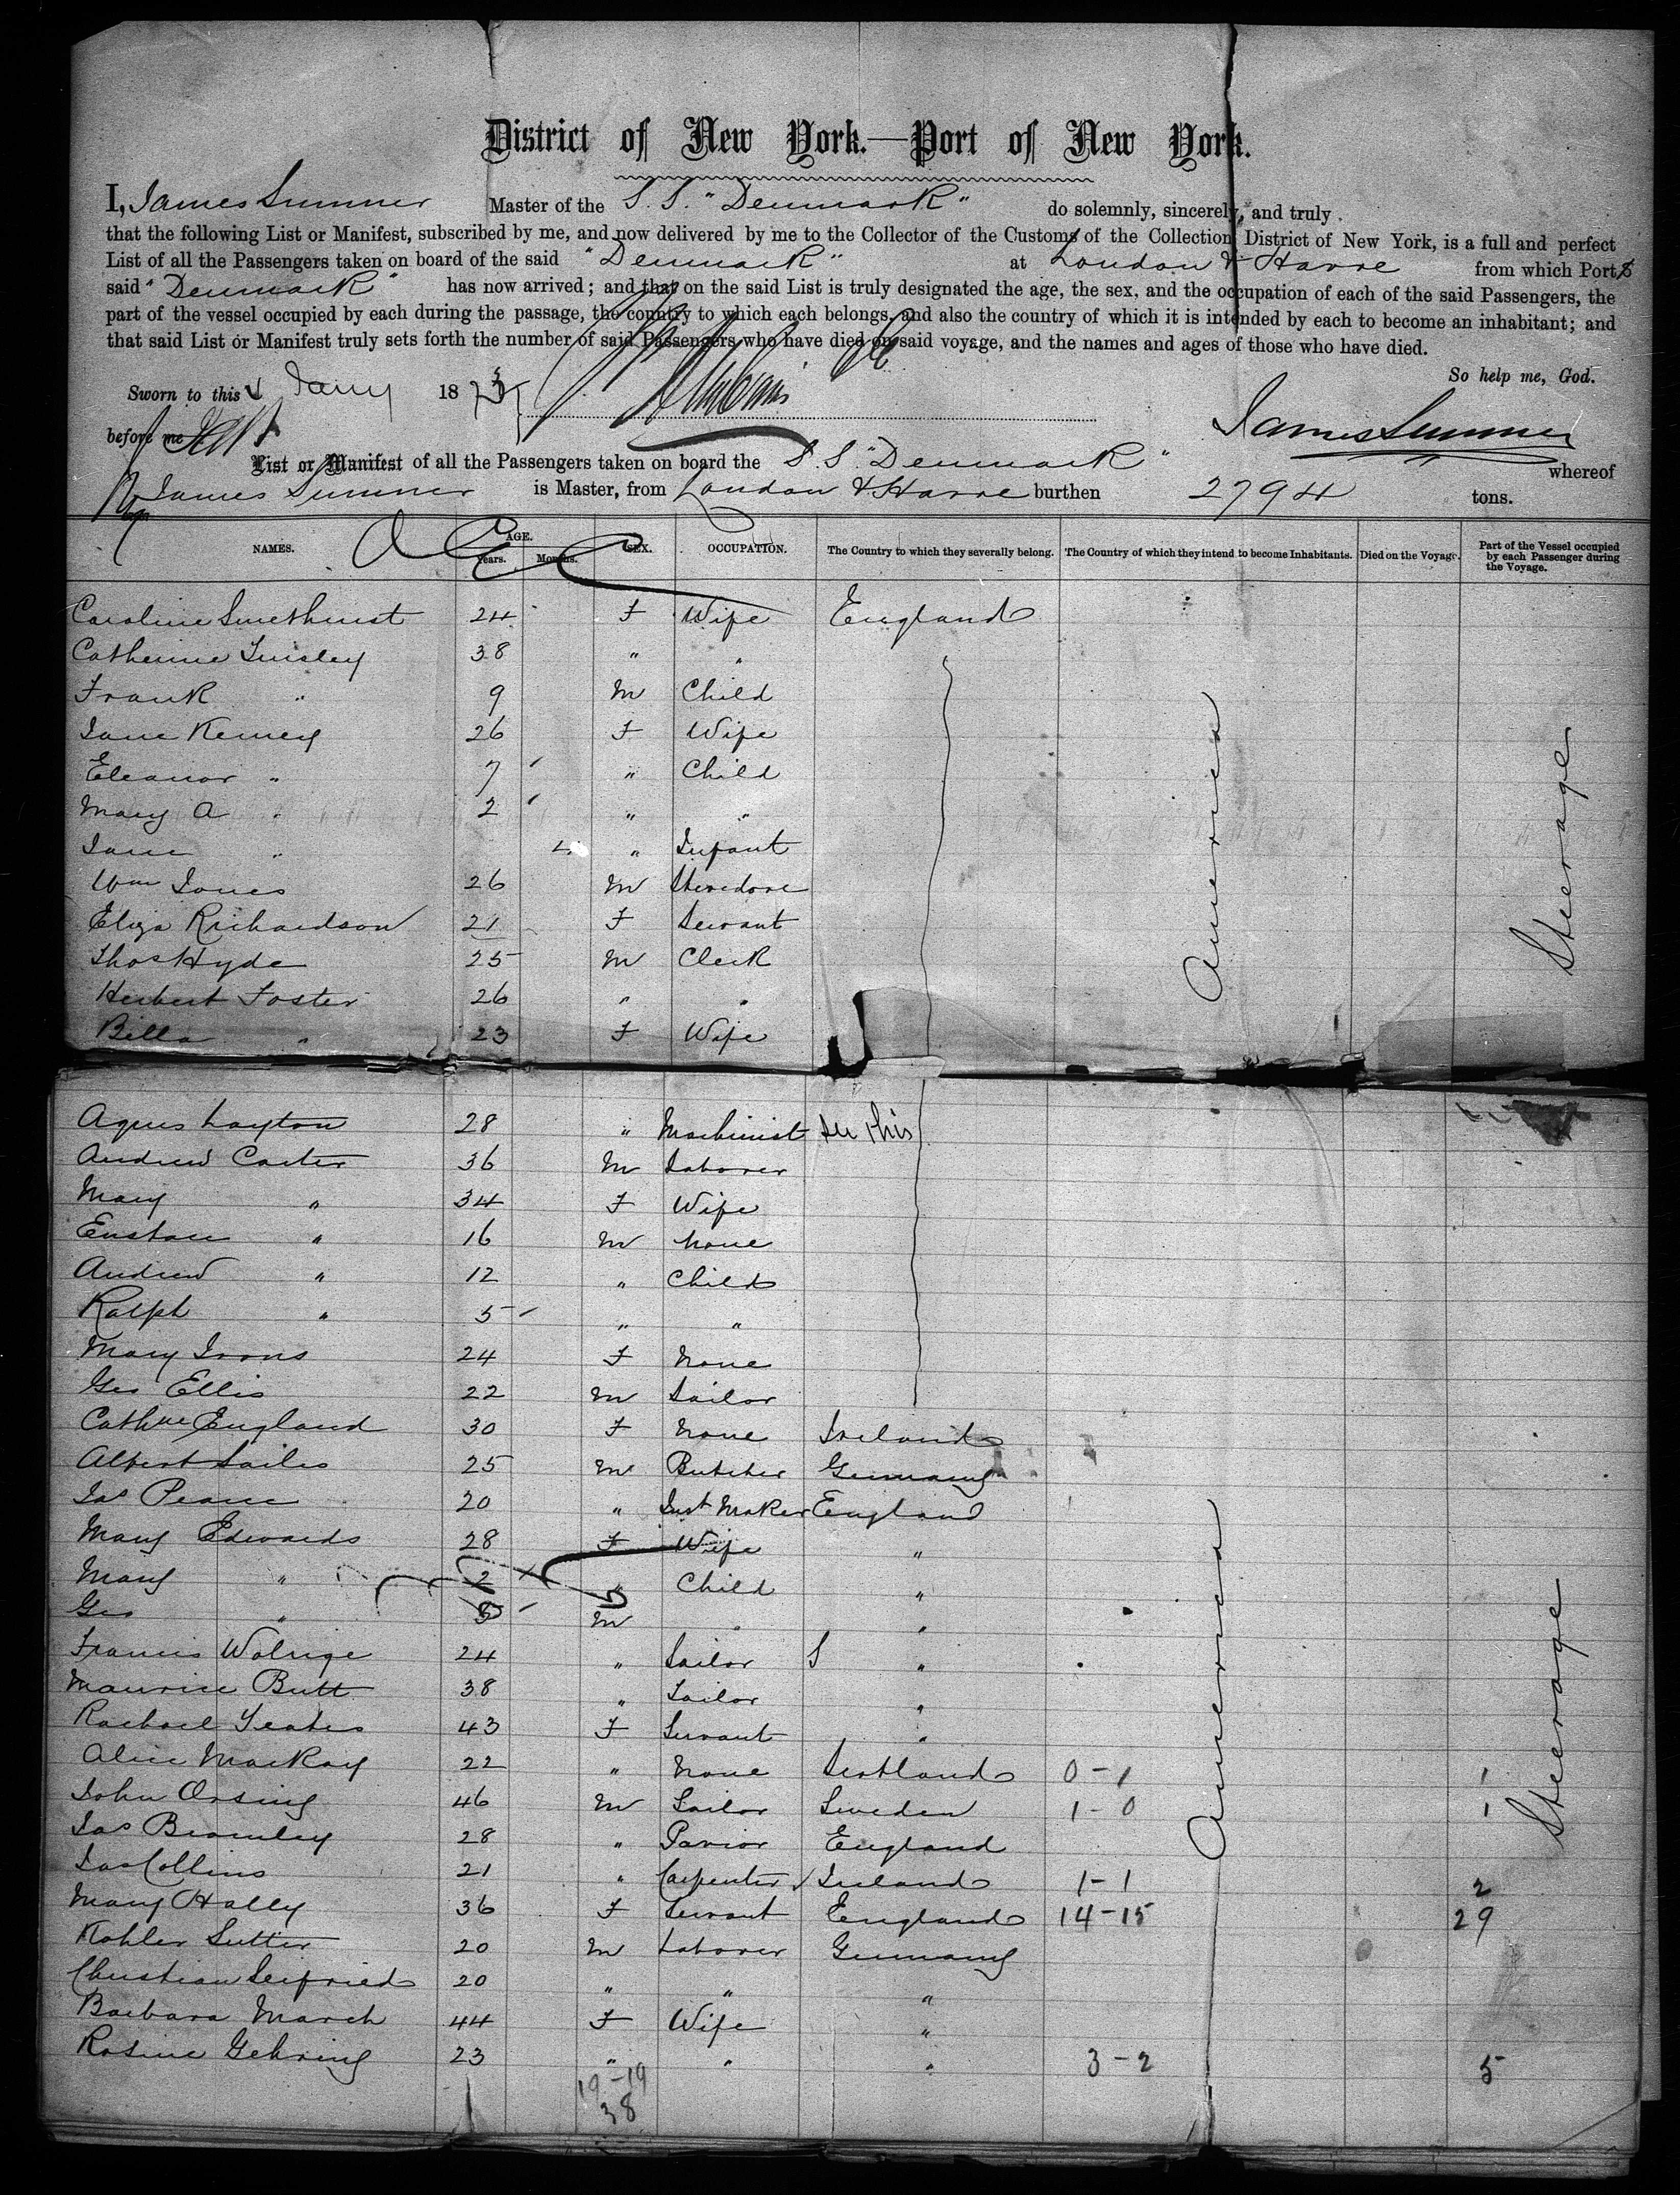 District of New York.—Port of New York.
I, James Sumner Master of the S. S. "Denmark" do solemnly, sincerely, and truly
that the following List or Manifest, subscribed by me, and now delivered by me to the Collector of the Customs of the Collection District of New York, is a full and perfect
List of all the Passengers taken on board of the said "Denmark" at London & Havre from which Ports
said "Denmark" has now arrived; and that on the said List is truly designated the age, the sex, and the occupation of each of the said Passengers, the
part of the vessel occupied by each during the passage, the country to which each belongs, and also the country of which it is intended by each to become an inhabitant; and
that said List or Manifest truly sets forth the number of said Passengers who have died on said voyage, and the names and ages of those who have died.
So help me, God.
Sworn to this Jany 1873
before me
James Sumner
List or Manifest of all the Passengers taken on board the S. S. "Denmark" whereof
James Sumner is Master, from London & Havre burthen 2794 tons.
NAMES. AGE. Years. Months. SEX. OCCUPATION. The Country to which they severally belong. The Country of which they intend to become Inhabitants. Died on the Voyage. Part of the Vessel occupied by each Passenger during the Voyage.
Caroline Smethurst 24 F Wife England
Catherine Tinsley 38 " "
Frank " 9 M Child
Jane Kemey 26 F Wife
Eleanor " 7 " Child
Mary A " 2 " "
Jane " 4 " Infant
Wm Jones 26 M Stevedore
Eliza Richardson 21 F Servant
Thos Hyde 25 M Clerk
Herbert Foster 26 " "
Bella " 23 F Wife
America
Steerage
Agnes Layton 28 " Machinist
Andrew Carter 36 M Laborer
Mary " 34 F Wife
Eustace " 16 M None
Andrew " 12 " Child
Ralph " 5 " "
Mary Irons 24 F None
Geo Ellis 22 M Sailor
Cathne England 30 F None Ireland
Albert Sailes 25 M Butcher Germany
Jas Pearce 20 " Inst Maker England
Mary Edwards 28 F Wife "
Mary " 2 " Child "
Geo " 5 M " "
Francis Wolrige 24 " Sailor S "
Maurice Butt 38 " Tailor "
Rachael Yeates 43 F Servant "
Alice MacKay 22 " None Scotland 0-1 1
John Orsing 46 M Sailor Sweden 1-0 1
Jas Bromley 28 " Pavior England
Jas Collins 21 " Carpenter Ireland 1-1 2
Mary Holly 36 F Servant England 14-15 29
Kohler Sutter 20 M Laborer Germany
Christian Seifried 20 " " "
Barbara March 44 F Wife "
Rosine Gehring 23 " " " 3-2 5
America
Steerage
19-19
38